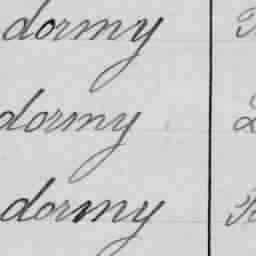 dormy
dormy
dormy